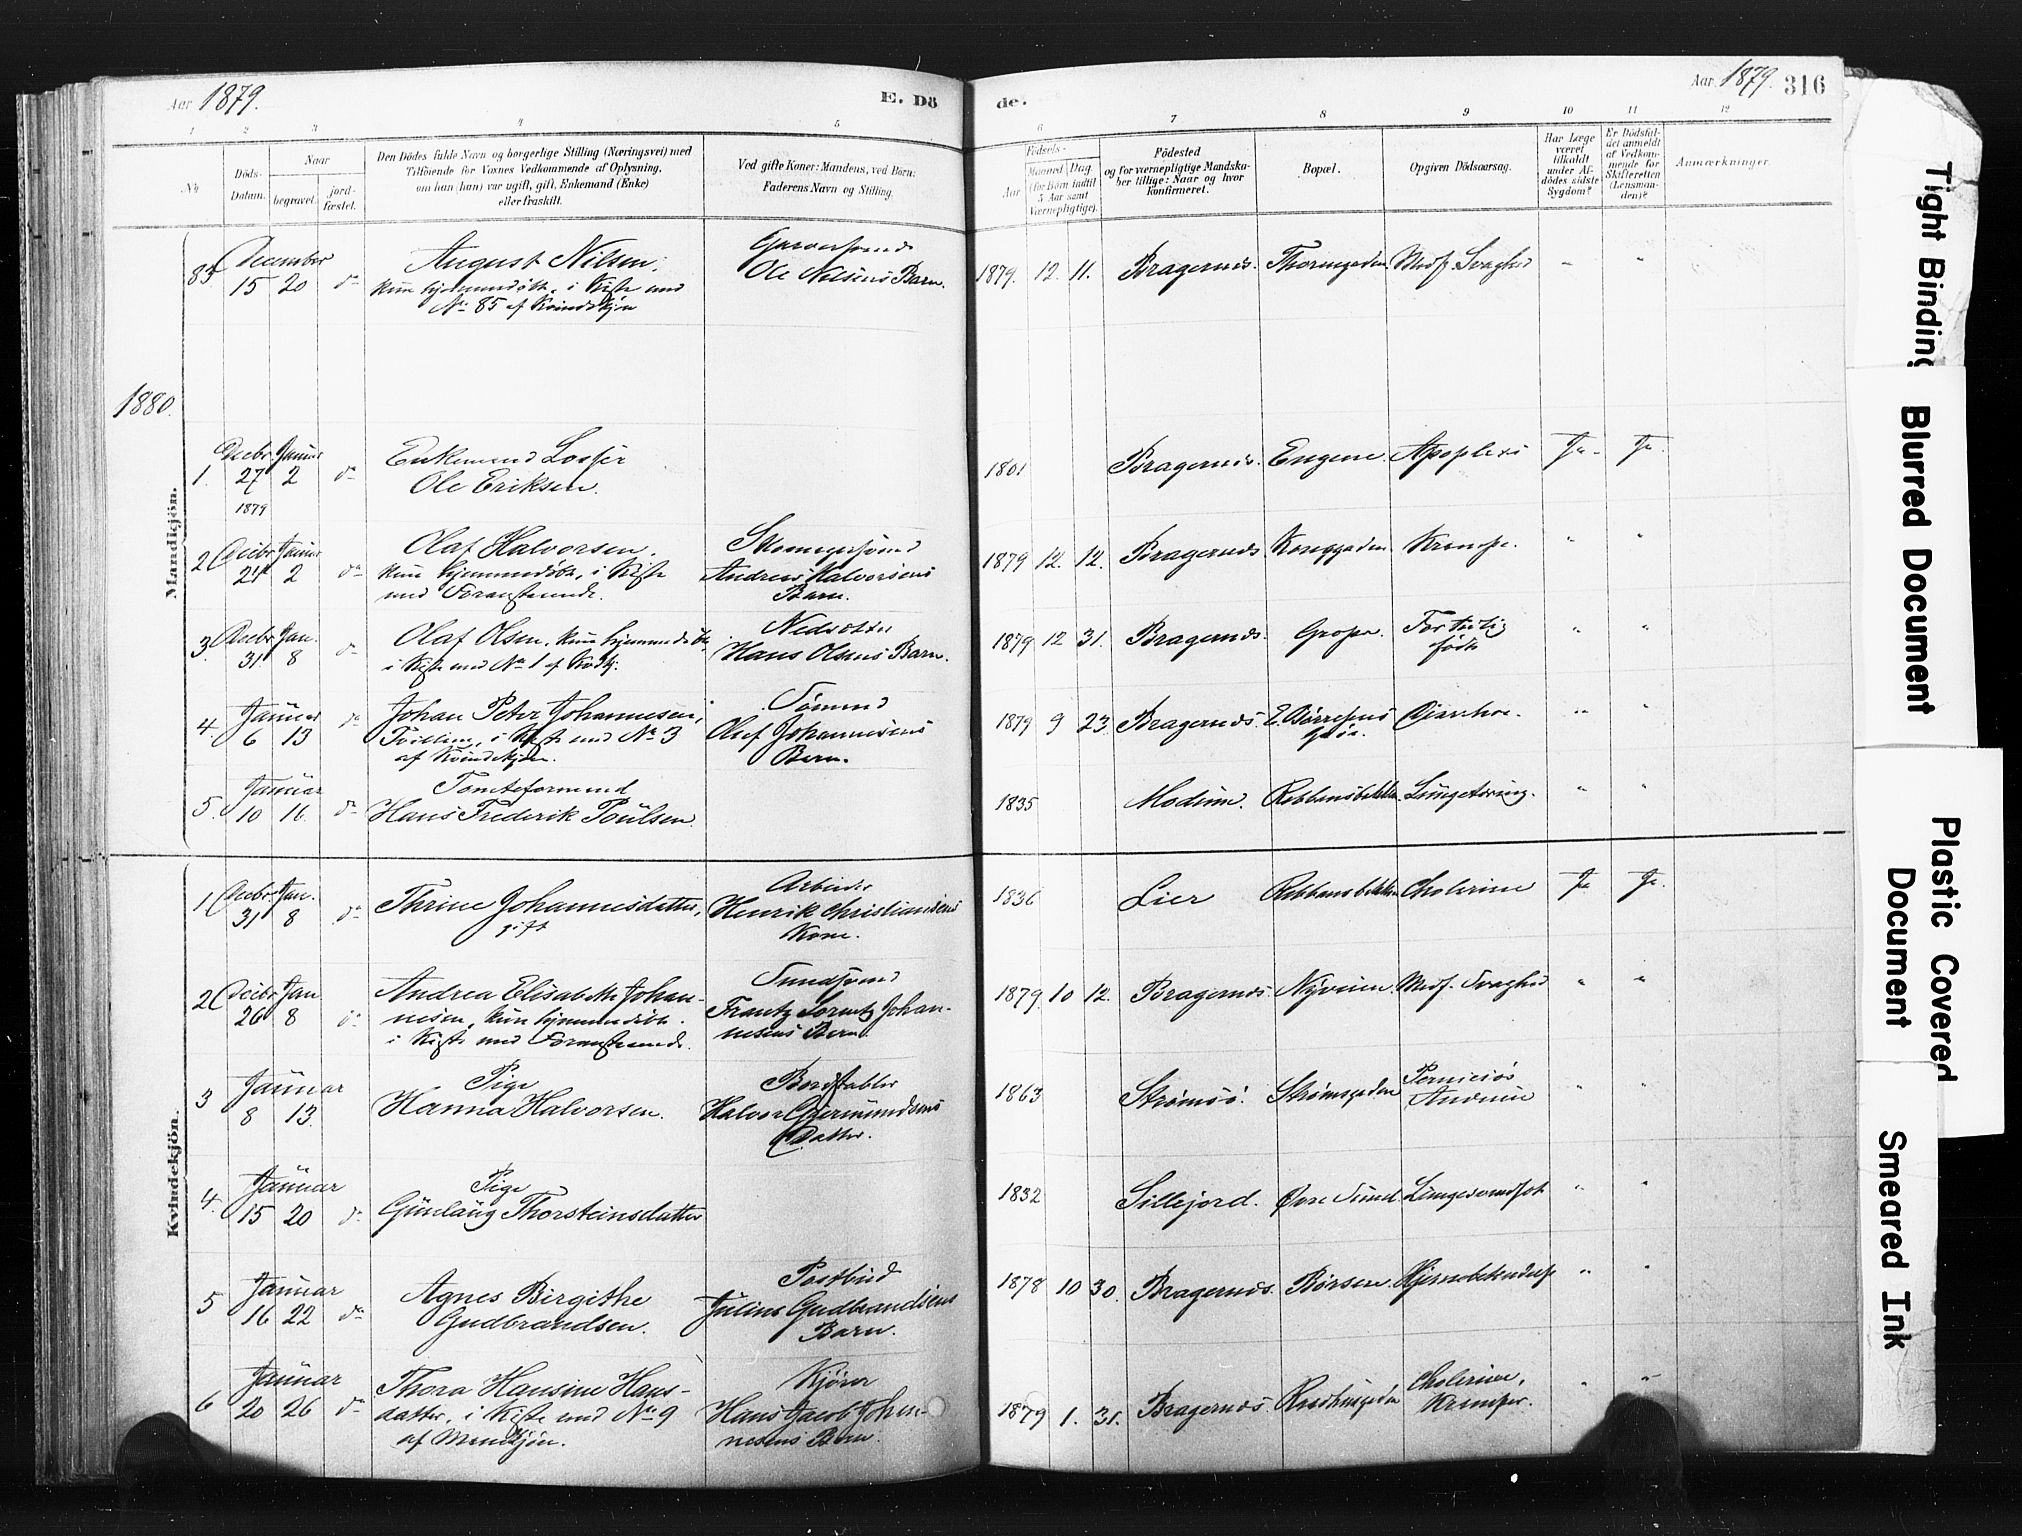 Aar 1879.
E. Dö
de.
Aar 1879. 316
1 2 3 4 5 6 7 8 9 10 11 12
No.
Döds-Datum.
Naar
begravet.
jord-fæstet.
Den Dödes fulde Navn og borgerlige Stilling (Næringsvei) med
Tilföiende for Voxnes Vedkommende af Oplysning,
om han (hun) var ugift, gift, Enkemand (Enke)
eller fraskilt.
Ved gifte Koner: Mandens, ved Börn:
Faderens Navn og Stilling.
Födsels-
Aar
Maaned Dag
(for Börn indtil
5 Aar samt
Værnepligtige).
Födested
og for værnepligtige Mandska-
ber tillige: Naar og hvor
konfirmeret.
Bopæl.
Opgiven Dödsaarsag.
Har Læge
været
tilkaldt
under Af-
dödes sidste
Sygdom?
Er Dödsfal-
det anmeldt
af Vedkom-
mende for
Skifteretten
(Lensman-
den)?
Anmærkninger.
Mandkjön.
83 December 15 20 do
August Nilsen,
kun hjemmedøbt, i Kiste med
No 85 af Kvindekjøn
Garversvend
Ole Nilsens Barn.
1879. 12. 11. Bragernæs. Thorngaden Medf. Svaghed " "
1880.
1. Decbr. 27 1879 Januar 2 do
Enkemand Losser
Ole Eriksen.
1801 Bragernæs. Engene. Apoplexi Ja. Ja.
2 Decbr. 24 Januar 2 do
Olaf Halvorsen.
kun hjemmedøbt, i Kiste
med Foranstaaende.
Skomagersvend
Andreas Halvorsens
Barn.
1879 12. 12. Bragernæs Konggaden Krampe. " "
3. Decbr. 31 Jan. 8 do
Olaf Olsen, kun hjemmedøbt,
i Kiste med No 1 af Kvdkj.
Hans Olsens Barn.
1879 12 31. Bragernæs. Gropa. For tidlig
født " "
4. Januar 6 13 do
Johan Peter Johannesen,
Tvilling, i Kiste med No 3
af Kvindekjøn.
Sømand
Oluf Johannesens
Barn.
1879 9 23. Bragernæs. E. Børresens
Diarrhoe. " "
5. Januar 10 16. do
Tomteformand
Hans Frederik Poulsen.
1835 Modum. Rebbansbakken Lungetæring. " "
Kvindekjön.
1 Decbr. 31 Jan. 8 do
Thrine Johannesdatter,
gift
Arbeider
Henrik Christiansens
Kone.
1836 Lier Rebbansbakken Cholerine Ja Ja.
2 Decbr. 26 Jan 8 do
Andrea Elisabeth Johan-
nesen, kun hjemmedøbt.
i Kiste med Foranstaaende.
Sundmand
Frantz Lorentz Johan-
nesens Barn
1879. 10 12. Bragernæs. Nyveien. Medf. Svaghed " "
3 Januar 8 13.
Pige
Hanna Halvorsen.
Bordstabler
Halvor Gjermundsens
Datter.
1863 Strømsø. Strømsgaden Perniciøs
Anæmie " "
4. Januar 15 20 do
Pige
Gunlaug Thorsteinsdatter
1832 Sillejord. Øvre Sund Lungesvindsot " "
5 Januar 16 22 do
Agnes Birgithe
Gudbrandsen.
Postbud
Julius Gudbrandsens
Barn.
1878 10 30. Bragernæs. Børsen. Hjernebetændelse " "
6 Januar 20 26 do
Thora Hansine Hans-
datter, i Kiste med No 9
af Mandkjøn.
Kjører
Hans Jacob Johan-
nesens Barn.
1879 1. 31. Bragernæs Raadhusgaden Cholerine,
Kramper. " "
Tight Binding
Blurred Document
Plastic Covered
Document
Smeared Ink